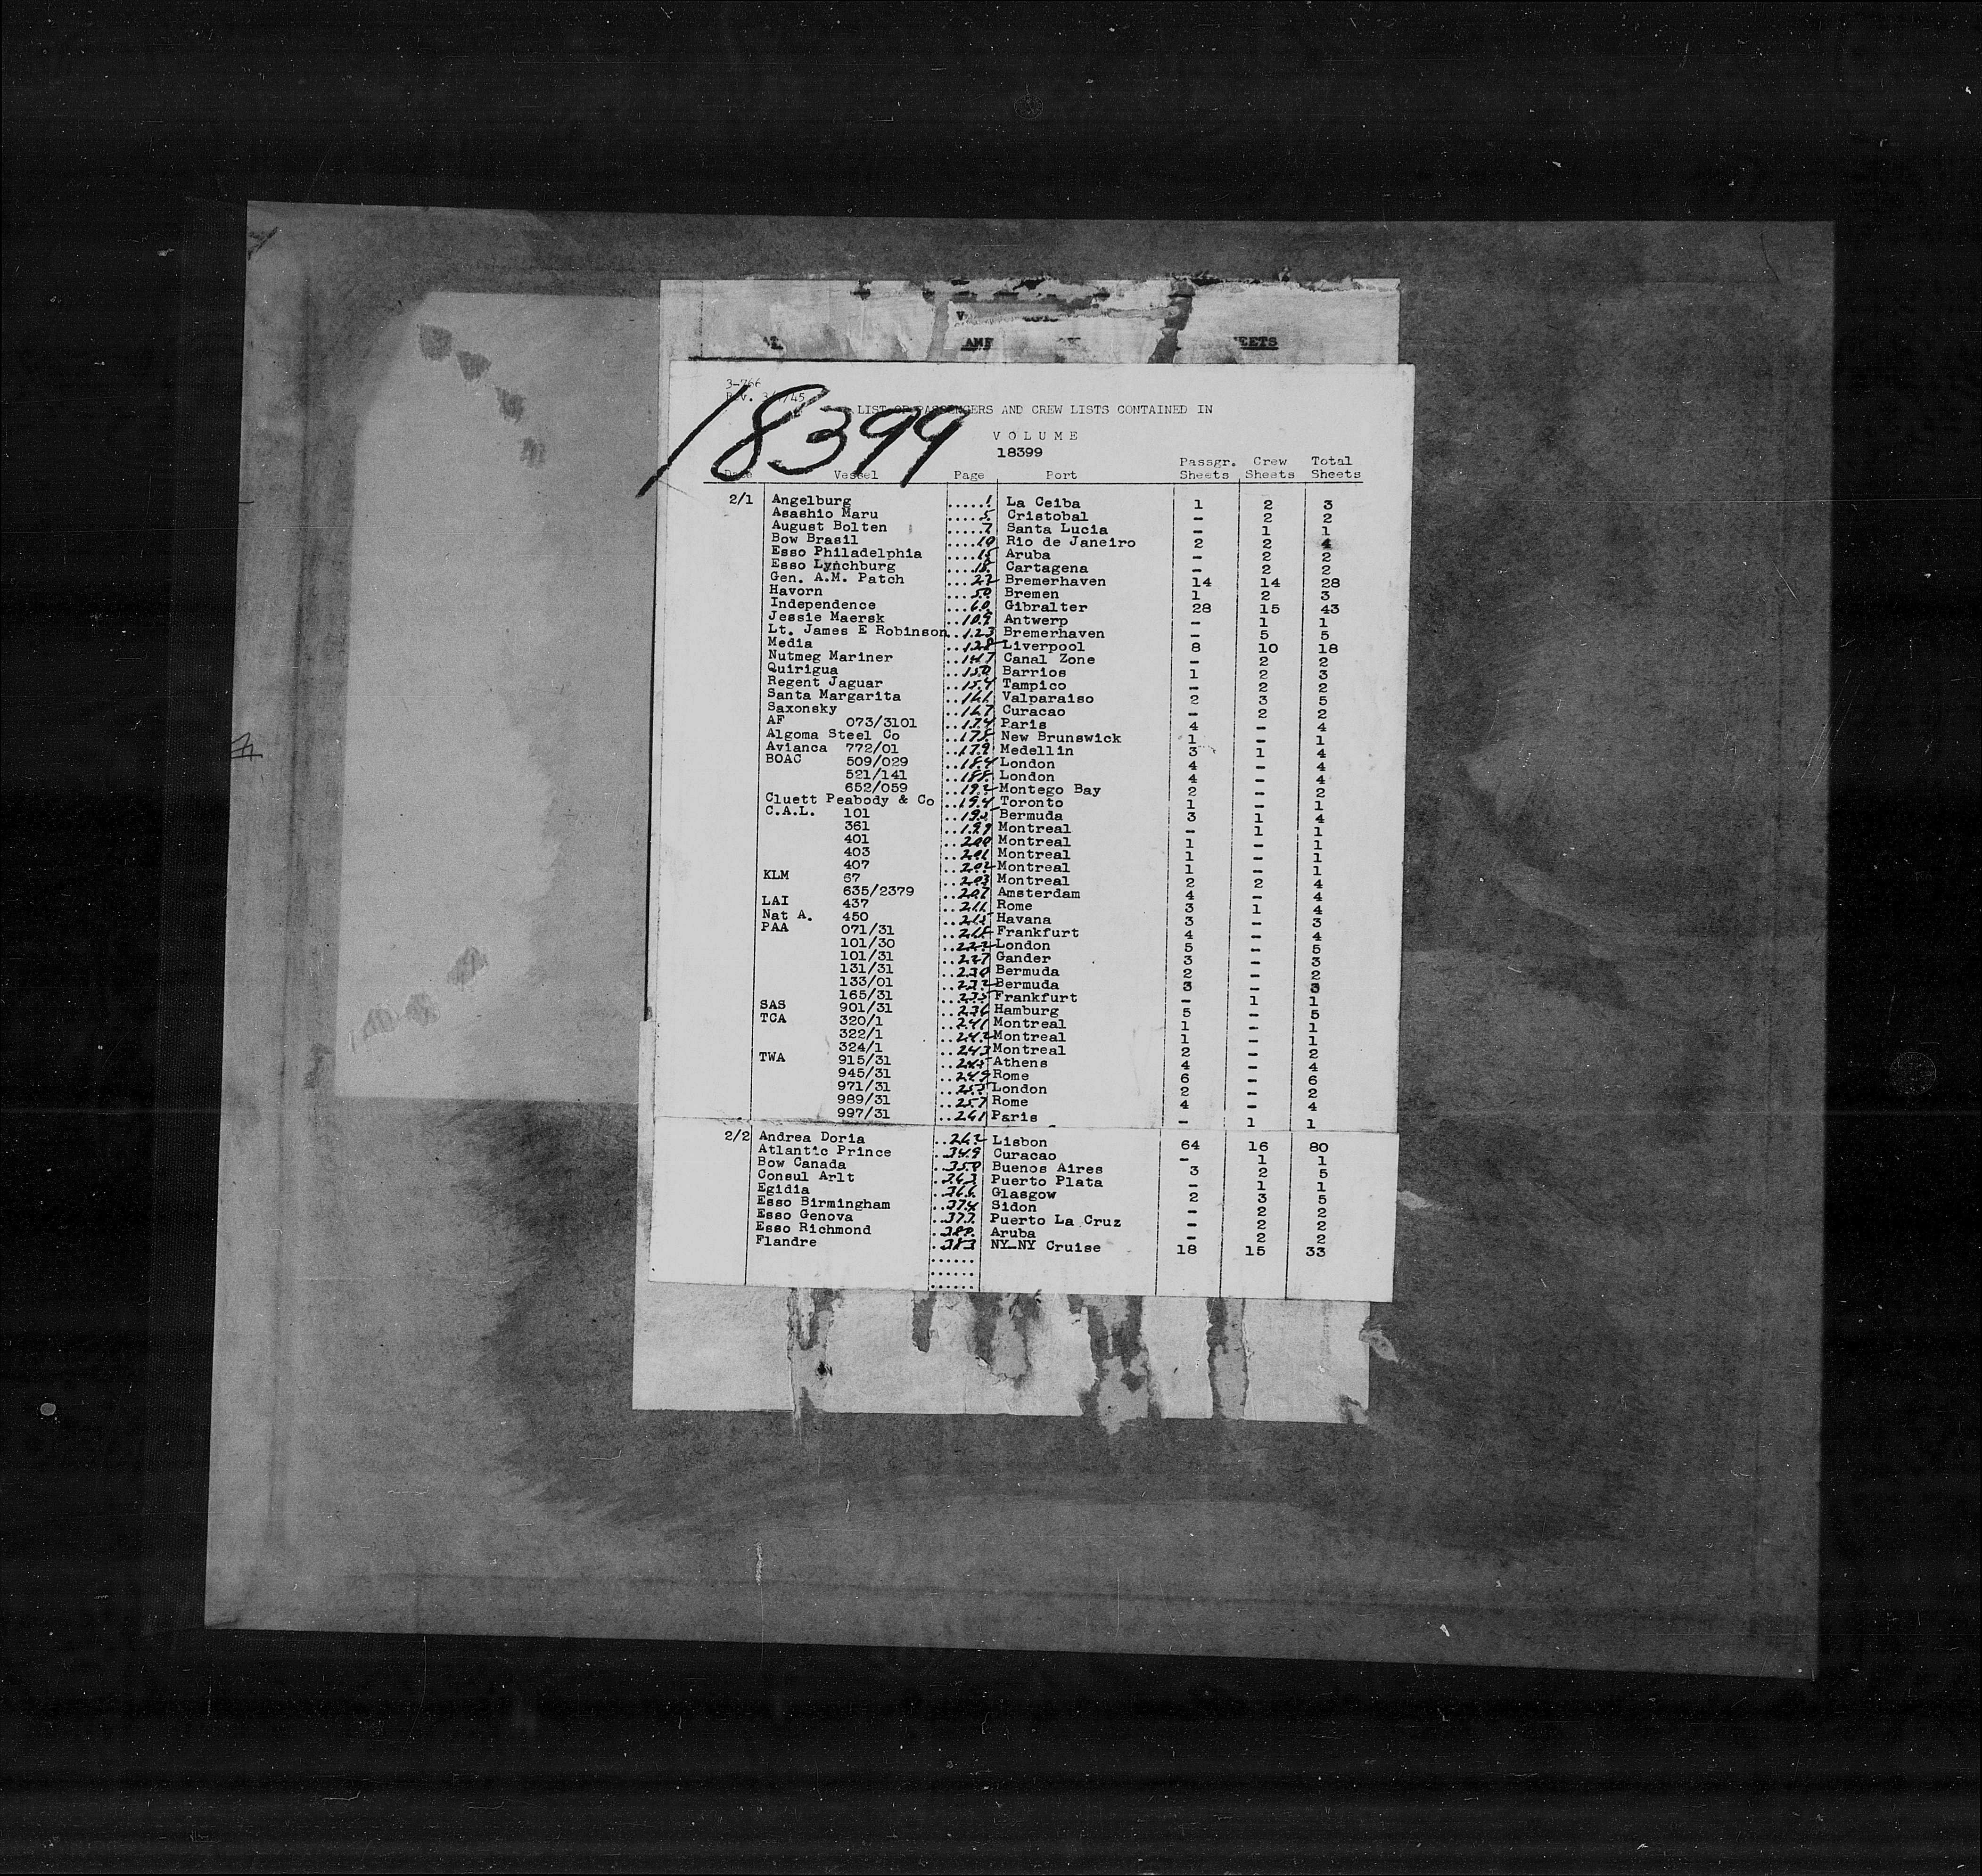 AME
EETS
3-766
Rev. 3/ /45
18399
LIST OF PASSENGERS AND CREW LISTS CONTAINED IN
VOLUME
18399
Date Vessel Page Port Passgr. Sheets Crew Sheets Total Sheets
2/1 Angelburg .....1 La Ceiba 1 2 3
Asashio Maru .....5 Cristobal - 2 2
August Bolten .....7 Santa Lucia - 1 1
Bow Brasil ....10 Rio de Janeiro 2 2 4
Esso Philadelphia ....15 Aruba - 2 2
Esso Lynchburg ....18 Cartagena - 2 2
Gen. A.M. Patch ....22 Bremerhaven 14 14 28
Havorn ....50 Bremen 1 2 3
Independence ....60 Gibralter 28 15 43
Jessie Maersk ..109 Antwerp - 1 1
Lt. James E Robinson ..123 Bremerhaven - 5 5
Media ..128 Liverpool 8 10 18
Nutmeg Mariner ..147 Canal Zone - 2 2
Quirigua ..150 Barrios 1 2 3
Regent Jaguar ..154 Tampico - 2 2
Santa Margarita ..161 Valparaiso 2 3 5
Saxonsky ..167 Curacao - 2 2
AF 073/3101 ..174 Paris 4 - 4
Algoma Steel Co ..178 New Brunswick 1 - 1
Avianca 772/01 ..179 Medellin 3 1 4
BOAC 509/029 ..184 London 4 - 4
521/141 ..188 London 4 - 4
652/059 ..192 Montego Bay 2 - 2
Cluett Peabody & Co ..194 Toronto 1 - 1
C.A.L. 101 ..195 Bermuda 3 1 4
361 ..199 Montreal - 1 1
401 ..200 Montreal 1 - 1
403 ..201 Montreal 1 - 1
407 ..202 Montreal 1 - 1
KLM 67 ..203 Montreal 2 2 4
635/2379 ..207 Amsterdam 4 - 4
LAI 437 ..211 Rome 3 1 4
Nat A. 450 ..215 Havana 3 - 3
PAA 071/31 ..218 Frankfurt 4 - 4
101/30 ..222 London 5 - 5
101/31 ..227 Gander 3 - 3
131/31 ..230 Bermuda 2 - 2
133/01 ..232 Bermuda 3 - 3
165/31 ..235 Frankfurt - 1 1
SAS 901/31 ..236 Hamburg 5 - 5
TCA 320/1 ..241 Montreal 1 - 1
322/1 ..242 Montreal 1 - 1
324/1 ..243 Montreal 2 - 2
TWA 915/31 ..245 Athens 4 - 4
945/31 ..249 Rome 6 - 6
971/31 ..255 London 2 - 2
989/31 ..257 Rome 4 - 4
997/31 ..261 Paris - 1 1
2/2 Andrea Doria ..262 Lisbon 64 16 80
Atlantic Prince ..349 Curacao - 1 1
Bow Canada ..350 Buenos Aires 3 2 5
Consul Arlt ..363 Puerto Plata - 1 1
Egidia ..366 Glasgow 2 3 5
Esso Birmingham ..374 Sidon - 2 2
Esso Genova ..377 Puerto La Cruz - 2 2
Esso Richmond ..380 Aruba - 2 2
Flandre ..383 NY-NY Cruise 18 15 33